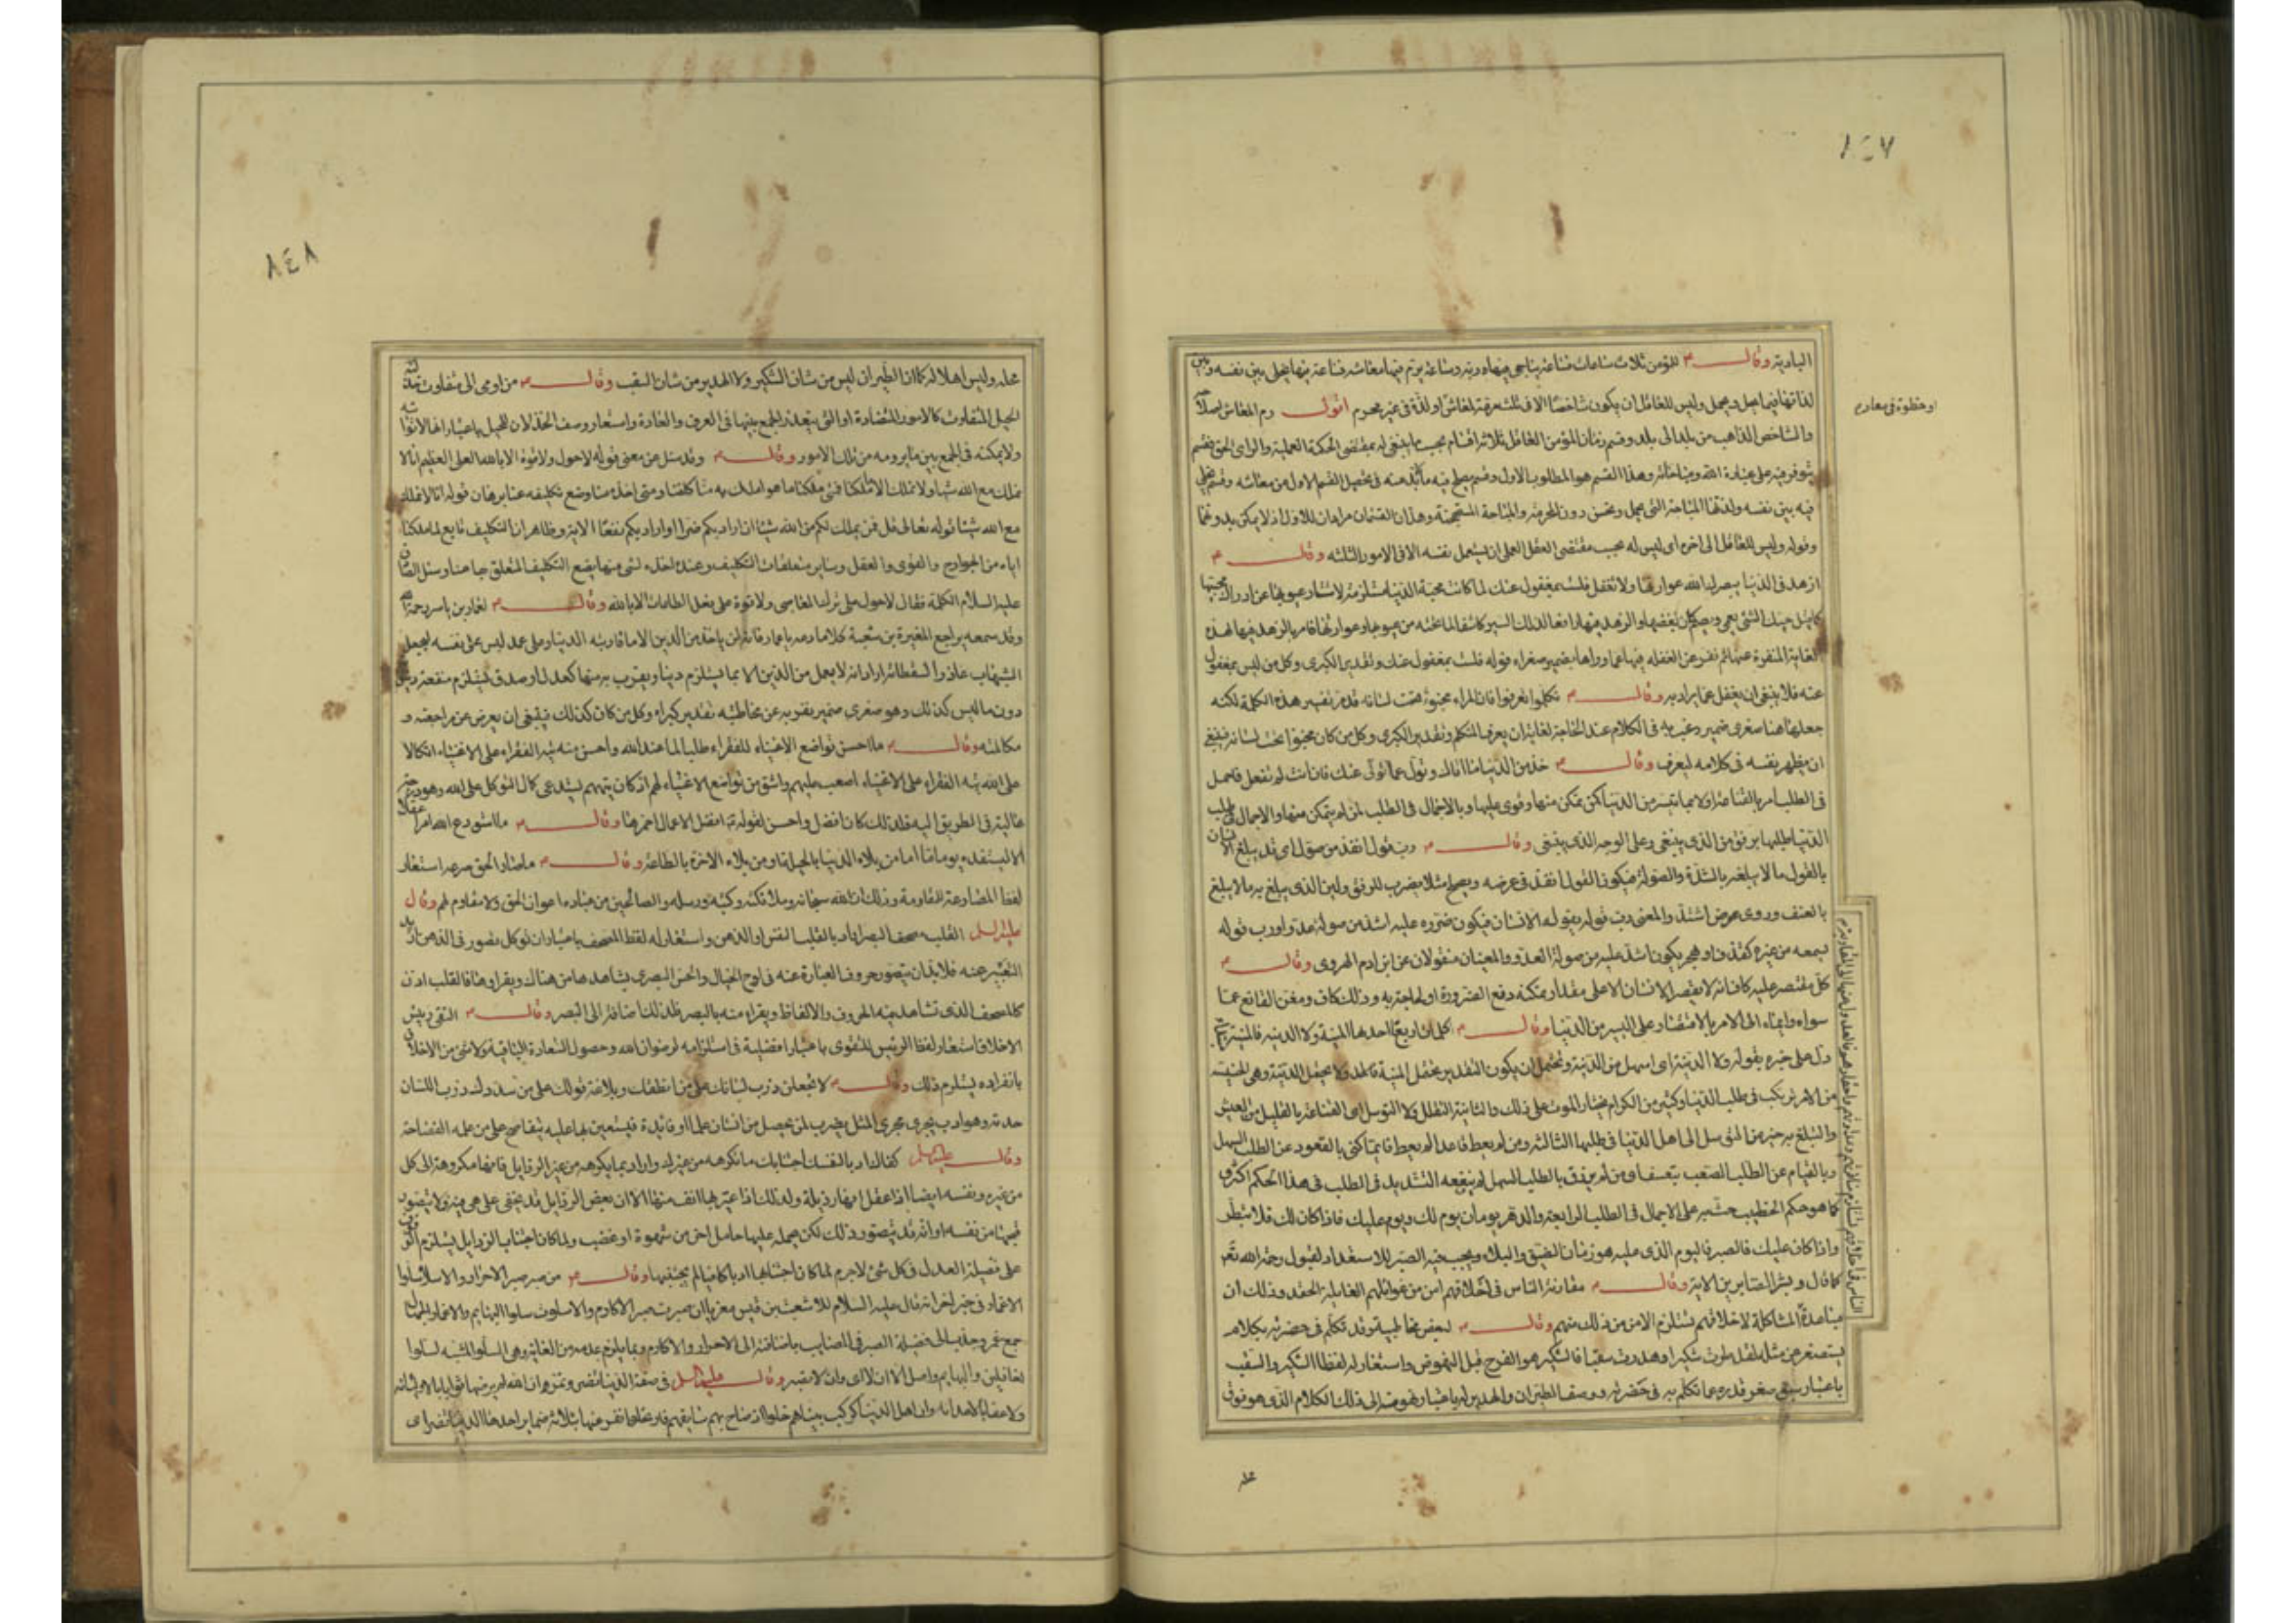 ٨٤٧
البادية وقال م للمؤمن ثلاث ساعات فساعة يناجى فيها ربه وساعة يرم فيها معاشه وساعة يخلى بين نفسه وبين
لذاتها فيما يحل ويجمل وليس للعاقل ان يكون شاخصا الا فى ثلث مرمة لمعاش او لذة فى غير محرم اقول رم المعاش اصلاحه
او خطوة فى معاد م
والشاخص الذاهب من بلد الى بلد وقسم زمان المؤمن العاقل ثلاثة اقسام بحسب ما ينبغى له بمقتضى الحكمة العملية والراى الحق فقسم
يتوفر فيه على عبادة الله ومناجاته وهذا القسم هو المطلوب الاول وقسم يصلح فيه ما لابد منه فى تحصيل القسم الاول من معاشه وقسم يخلى
فيه بين نفسه ولذتها المباحة التى تجمل وتحسن دون المحرمة والمباحة المستهجنة وهذان القسمان مرادان للاول اذ لا يمكن بدونهما
وقوله وليس للعاقل الى اخره اى ليس له بحسب مقتضى العقل العملى ان يستعمل نفسه الا فى الامور الثلثه وقال م
ازهد فى الدنيا يبصرك الله عوراتها ولا تغفل فلست بمغفول عنك لما كانت محبة الدنيا مستلزمة لاستتار عيوبها عن ادراك محبتها
كما قيل حبك الشئ يعمى ويصم كان بغضها والزهد فيها رافعا لذلك الستر كاشفا لما تحته من عيوبها وعوراتها فامر بالزهد فيها لهذه
الغاية المنفرة عنها ثم نفر عن الغفله فيها عما وراها بضمير صغراه قوله فلست بمغفول عنك وتقدير الكبرى وكل من ليس بمغفول
عنه فلا ينبغى ان يغفل عما يراد به وقال م تكلموا تعرفوا فان المرء مخبوء تحت لسانه قد مر تفسير هذه الكلمة لكنه
جعلها هنا صغرى ضمير رغب به فى الكلام عند الحاجة لغاية ان يعرف المتكلم وتقدير الكبرى وكل من كان مخبوا تحت لسانه فينبغى
ان يظهر نفسه فى كلامه ليعرف وقال م خذ من الدنيا ما اتاك وتول عما تولى عنك فان انت لم تفعل فاجمل
فى الطلب امر بالقناعة اولا بما تيسر من الدنيا لمن تمكن منها وقوى عليها وبالاجمال فى الطلب لمن لم يتمكن منها والاجمال فى طلب
الدنيا طلبها برفق من الذى ينبغى وعلى الوجه الذى ينبغى وقال م رب قول انفذ من صول اى قد يبلغ الانسان
بالقول ما لا يبلغه بالشدة والصولة فيكون القول انفذ فى غرضه ويصلح مثلا يضرب للرفق ولين الذى يبلغ به ما لا يبلغ
بالعنف وروى عوض اشد والمعنى رب قول يقوله الانسان فيكون ضرره عليه اشد من صولة عدو او رب قوله
يسمعه من غيره كقذف او هجر يكون اشد عليه من صولة العدو والمعنيان منقولان عن ابن ادم الهروى وقال م
كل مقتصر عليه كاف انه لا يقصر الانسان الا على مقدار يمكنه دفع الضرورة او الحاجة به وذلك كاف ومغن القانع عما
سواه وايماء الى الامر بالاقتصار على اليسير من الدنيا وقال م
دل على خبره بقوله ولا الدنية اى اسهل من الدنية ويحتمل ان يكون التقدير يحتمل المنية
من الامر يرتكب فى طلب الدنيا وكثير من الكرام يختار الموت على ذلك والثانية التقلل ولا التوسل اى القناعة بالقليل من العيش
والتبلغ به خير من التوسل الى اهل الدنيا فى طلبها الثالثه ومن لم يعط قاعدا لم يعط قائما كنى بالقعود عن الطلب السهل
وبالقيام عن الطلب الصعب بتعسف اى من لم يرزق بالطلب السهل لم ينفعه التشديد فى الطلب فى هذا الحكم اكثرى
كما هو حكم الخطيب حث به على الاجمال فى الطلب الرابعة والدهر يومان يوم لك ويوم عليك فاذا كان لك فلا تبطر
واذا كان عليك فاصبر فاليوم الذى عليه هو زمان الضيق والبلاء ويجب فيه الصبر للاستعداد لقبول رحمة الله تع
كما قال وبشر الصابرين الاية وقال م مقاربة الناس فى اخلاقهم امن من غوائلهم الغايلة الحقد وذلك ان
مباعدة المشاكلة لاخلاقهم يستلزم الامن من ذلك منهم وقال م لبعض مخاطبيه وقد تكلم فى حضرته بكلام
يستصغر عن مثله لقد طرت شكيرا وهدرت سقبا فالشكير هو الفرخ قبل النهوض واستعار له لفظا الشكير والسقب
باعتبار صغر قدره عما تكلم به فى حضرته ووصفا الطيران والهدير له باعتبار نهوضه الى ذلك الكلام الذى هو فوق
محله
٨٤٨
محله وليس اهلا له كما ان الطيران ليس من شان الشكير ولا الهدير من شان السقب وقال م من اومى الى متفاوت خذلته
الحيل المتفاوت كالامور المتضادة او التى يتعذر الجمع بينها فى العرف والعادة واستعار وصف الخذلان للحيل باعتبار انها لا تواتيه
ولا يمكنه فى الجمع بين ما يرومه من تلك الامور وقال م وقد سئل عن معنى قوله لا حول ولا قوة الا بالله العلى العظيم انا لا
نملك مع الله شيئا ولا نملك الا ما ملكنا فمتى ملكنا ما هو املك به منا كلفنا ومتى اخذه منا وضع تكليفه عنا برهان قوله انا لا نملك
مع الله شيئا قوله تعالى قل فمن يملك لكم من الله شيئا ان اراد بكم ضرا او اراد بكم نفعا الاية وظاهر ان التكليف تابع لما ملكنا
اياه من الجوارح والقوى والعقل وساير متعلقات التكليف وعند اخذه لشئ منها يضع التكليف المتعلق بها عنا وسئل الصادق
عليه السلام الكلمة فقال لا حول على ترك المعاصى ولا قوة على فعل الطاعات الا بالله وقال م لعمار بن ياسر رحمه الله
وقد سمعه يراجع المغيرة بن شعبة كلاما دعه يا عمار فانه لن ياخذ من الدين الا ما قاربته الدنيا وعلى عمد لبس على نفسه ليجعل
الشبهات عاذرا لسقطاته اراد انه لا يعمل من الدين الا بما يستلزم دنيا ويقرب به منها كعدل او صدق يستلزم منفعة دنيوية
دون ما ليس كذلك وهو صغرى ضمير نفر به عن مخاطبته تقدير كبراه وكل من كان كذلك فينبغى ان يعرض عن مراجعته و
مكالمته وقال م ما احسن تواضع الاغنياء للفقراء طلبا لما عند الله واحسن منه تيه الفقراء على الاغنياء اتكالا
على الله تيه الفقراء على الاغنياء اصعب عليهم واشق من تواضع الاغنياء لهم اذ كان تيههم يستدعى كمال التوكل على الله وهو درجة
عالية فى الطريق اليه فلذلك كان افضل واحسن لقوله م افضل الاعمال احمزها وقال م ما استودع الله امرا عقلا
الا ليستنقذه يوما ما اما من بلاء الدنيا بالحيلة او من بلاء الاخرة بالطاعة وقال م ما صارع الحق صرعه استعار
لفظ المصارعة للمقاومة وذلك ان الله سبحانه وملائكته وكتبه ورسله والصالحين من عباده اعوان الحق ولا مقاوم لهم وقال
عليه السلام القلب مصحف البصر اراد بالقلب النفس او الذهن واستعار له لفظ المصحف باعتبار ان كل تصور فى الذهن اريد
التعبير عنه فلابد ان يتصور حروف العبارة عنه فى لوح الخيال والحس البصرى يشاهدها من هناك ويقراوها فالقلب اذن
كالمصحف الذى تشاهد فيه الحروف والالفاظ ويقراء منه بالبصر فلذلك اضافه الى البصر وقال م التقى رئيس
الاخلاق استعار لفظ الرئيس للتقوى باعتبار افضلية فى استلزامه لرضوان الله وحصول السعادة الباقية ولا شئ من الاخلاق
بانفراده يستلزم ذلك وقال م لا تجعلن ذرب لسانك على من انطقك وبلاغة قولك على من سددك ذرب اللسان
حدته وهو ادب يجرى مجرى المثل يضرب لمن يحصل من انسان علما او فائدة فيستعين بها عليه كتفاصح على من علمه الفصاحة
وقال عليه السلام كفاك ادبا لنفسك اجتنابك ما تكرهه من غيرك واراد بما يكرهه من غيره الرذايل فانها مكروهة الى كل
من غيره ونفسه ايضا اذا عقل انها رذيلة ولذلك اذا عير بها انف منها الا ان بعض الرذايل قد يخفى على من هى فيه ولا يتصور
قبحها من نفسه او انه قد يتصور ذلك لكن يحمله عليها حامل اخر من شهوة او غضب ولما كان اجتناب الرذايل يستلزم الوقوف
على فضيلة العدل فى كل شئ لا جرم لما كان اجتنابها ادبا كافيا لم يجتنبها وقال م من صبر صبر الاحرار والا سلا سلوا
الاغمار وفى خبر اخر انه قال عليه السلام للاشعث بن قيس معزيا ان صبرت صبر الاكارم والا سلوت سلو البهايم والاغمار الجهال
جمع غمر وجذب الى فضيلة الصبر فى المصايب باضافته الى الاحرار والاكارم وبما يلزم عدمه من الغاية وهى السلو المشبه لسلو
الغافلين والبهايم واصل الا ان لا اى وان لا تصبر وقال عليه السلم فى صفة الدنيا تغر وتضر وتمر ان الله لم يرضها ثوابا لاوليائه
ولا عقابا لاعدائه وان اهل الدنيا كركب بينا هم حلوا اذ صاح بهم سائقهم فارتحلوا نفر عنها بثلاثة ضماير احدها الدنيا تغر اى